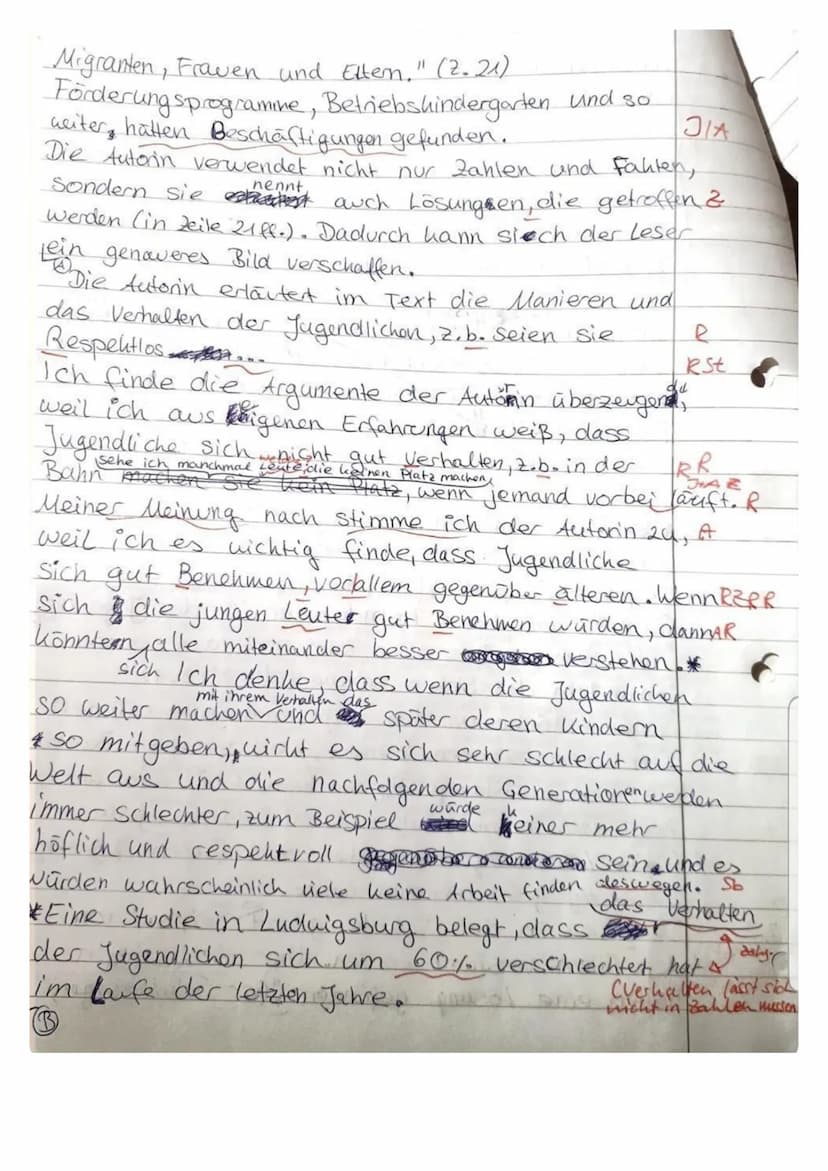 Migranten, Frauen und Eltern." (Z. 21)
Förderungsprogramme, Betriebskindergarten und so
weiter, hätten Beschäftigungen gefunden. J/A
Die Autorin verwendet nicht nur Zahlen und Fakten,
nennt
sondern sie auch Lösungen, die getroffen Z
werden (in Zeile 21ff.). Dadurch kann sich der Leser
ein genaueres Bild verschaffen.
A
Die Autorin erläutert im Text die Manieren und
das Verhalten der Jugendlichen, z.b. seien sie R
Respektlos ... RSt
Ich finde die Argumente der Autorin überzeugend,
weil ich aus eigenen Erfahrungen weiß, dass
Jugendliche sich nicht gut Verhalten, z.b. in der R R
sehe ich manchmal Leute, die keinen Platz machen,
Bahn machen sie kein Platz, wenn jemand vorbei läuft. R
Meiner Meinung nach stimme ich der Autorin zu, A
weil ich es wichtig finde, dass Jugendliche
sich gut Benehmen, vorallem gegenüber älteren. Wenn RZRR
sich die jungen Leute gut Benehmen würden, dann AR
könnten alle miteinander besser verstehen.*
sich Ich denke, dass wenn die Jugendlichen
mit ihrem Verhalten das
so weiter machen und später deren Kindern
* so mitgeben, wirkt es sich sehr schlecht auf die
Welt aus und die nachfolgenden Generationen werden
würde
immer schlechter, zum Beispiel keiner mehr
höflich und respektvoll sein und es
würden wahrscheinlich viele keine Arbeit finden deswegen. Sb
das Verhalten
*Eine Studie in Ludwigsburg belegt, dass
der Jugendlichen sich um 60% verschlechtert hat
im Laufe der letzten Jahre. (Verhalten lässt sich
nicht in Zahlen messen
B